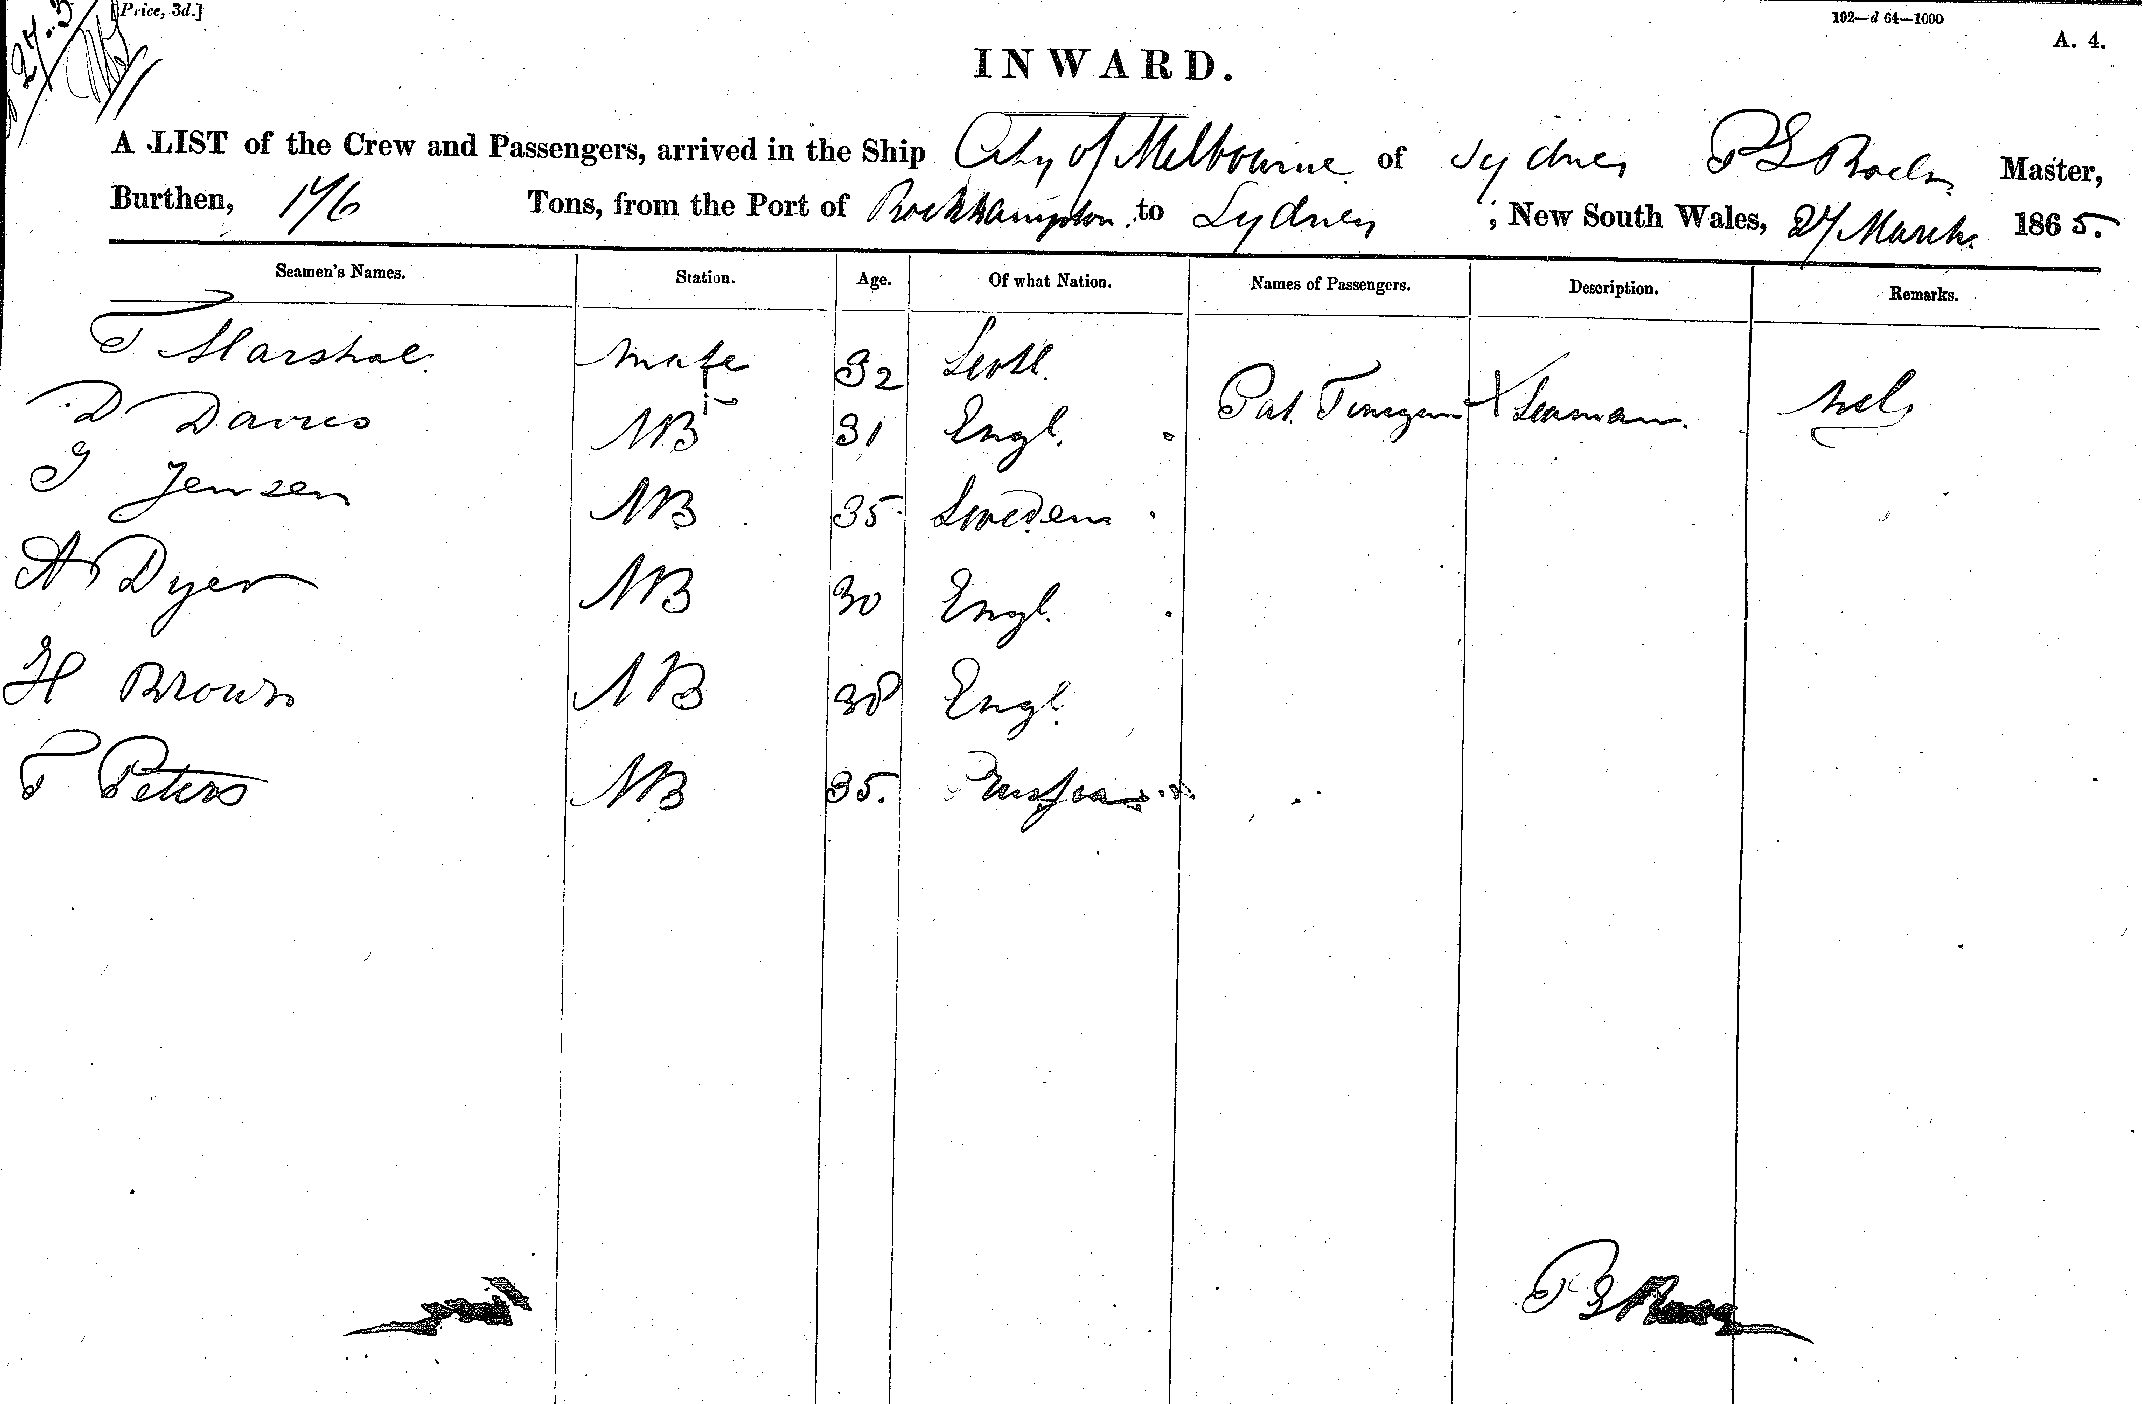 27.3
[Price, 3d.]
192—d 64—1000
A. 4.
INWARD.
A LIST of the Crew and Passengers, arrived in the Ship City of Melbourne of Sydney Master,
Burthen, 176 Tons, from the Port of Rockhampton to Sydney ; New South Wales, 27 March 1865.
Seamen's Names. Station. Age. Of what Nation. Names of Passengers. Description. Remarks.
T Marshal Mate 32 Scotl.
D Davies AB 31 Engl. Pat. Finegan Seaman
J Jensen AB 35 Sweden
A Dyer AB 30 Engl.
H Brown AB 38 Engl.
T Peters AB 35.